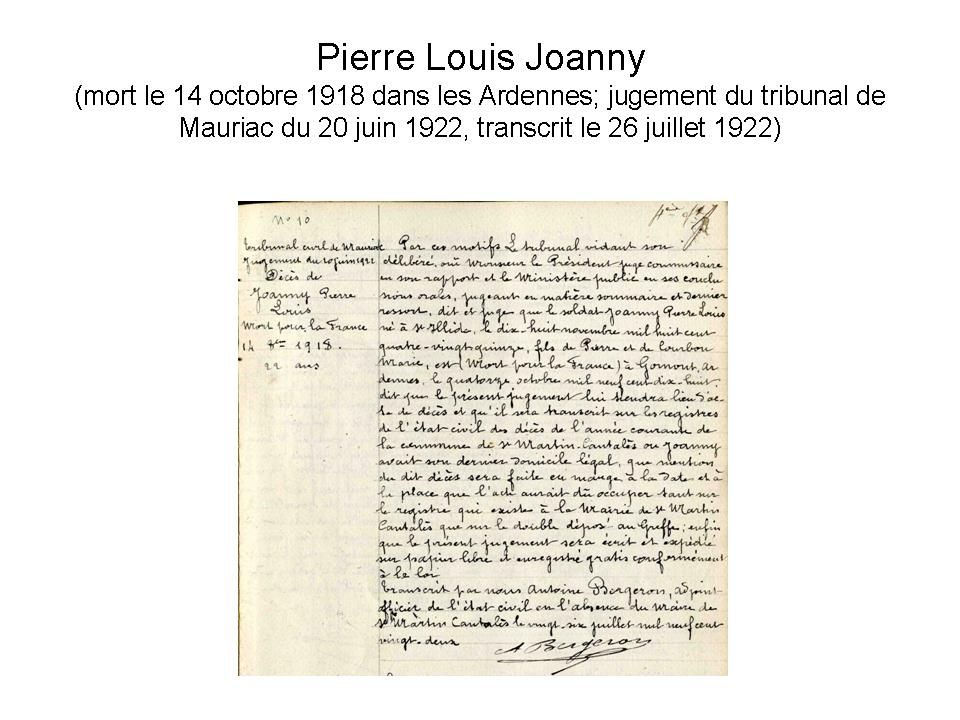 Pierre Louis Joanny
(mort le 14 octobre 1918 dans les Ardennes; jugement du tribunal de
Mauriac du 20 juin 1922, transcrit le 26 juillet 1922)
N° 10
tribunal civil de Mauriac
Jugement du 20 juin 1922
Décès de
Joanny Pierre
Louis
Mort pour la France
14 8bre 1918.
22 ans
Par ces motifs Le tribunal vidant son
délibéré, ouï Monsieur le Président juge commissaire
en son rapport et le Ministère public en ses conclu
sions orales, jugeant en matière sommaire et dernier
ressort, dit et juge que le soldat Joanny Pierre Louis
né à St Illide, le dix-huit novembre mil huit cent
quatre-vingt-quinze, fils de Pierre et de Courbou
Marie, est (Mort pour la France) à Gomont, Ar
dennes, le quatorze octobre mil neuf cent dix-huit.
dit que le présent jugement lui tiendra lieu d'ac-
te de décès et qu'il sera transcrit sur les registres
de l'état civil des décès de l'année courante de
la commune de St Martin-Cantalès ou Joanny
avait son dernier domicile légal, que mention
du dit décès sera faite en marge à la date et à
la place que l'acte aurait dû occuper tant sur
le registre qui existe à la Mairie de St Martin
Cantalès que sur le double déposé au Greffe; enfin
que le présent jugement sera écrit et expédié
sur papier libre et enregistré gratis conformément
à la loi
transcrit par nous Antoine Bergeron, adjoint
officier de l'état civil en l'absence du Maire de
St Martin Cantalès le vingt-six juillet mil neuf cent
vingt-deux
A Bergeron